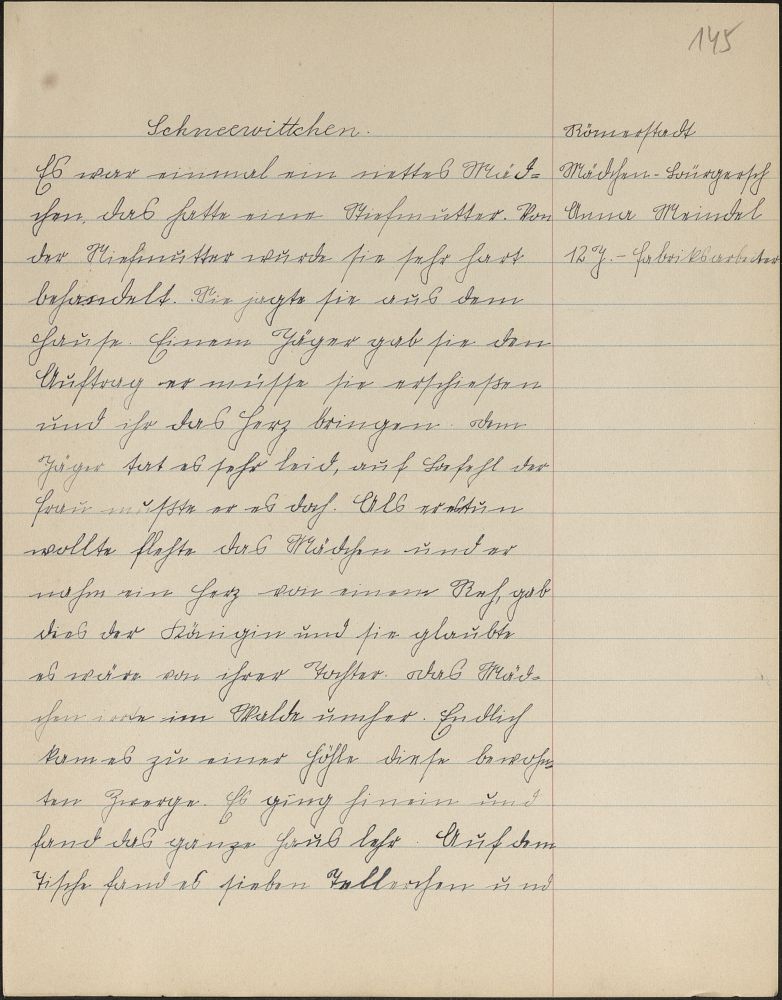 145
Schneewittchen.
Es war einmal ein nettes Mäd-
chen, das hatte eine Stiefmutter. Von
der Stiefmutter wurde sie sehr hart
behandelt. Sie jagte sie aus dem
Hause. Einem Jäger gab sie den
Auftrag er müsse sie erschießen
und ihr das Herz bringen. Dem
Jäger tat es sehr leid, auf Befehl der
Frau mußte er es doch. Als er es tun
wollte flehte das Mädchen und er
nahm ein Herz von einem Reh, gab
dies der Königin und sie glaubte
es wäre von ihrer Tochter. Das Mäd-
chen irrte im Walde umher. Endlich
kam es zu einer Höhle diese bewohn-
ten Zwerge. Es ging hinein und
fand das ganze Haus lehr. Auf dem
Tische fand es sieben Tellerchen und
Römerstadt
Mädchen-Bürgersch
Anna Meindel
12 J. - Fabriksarbeiter